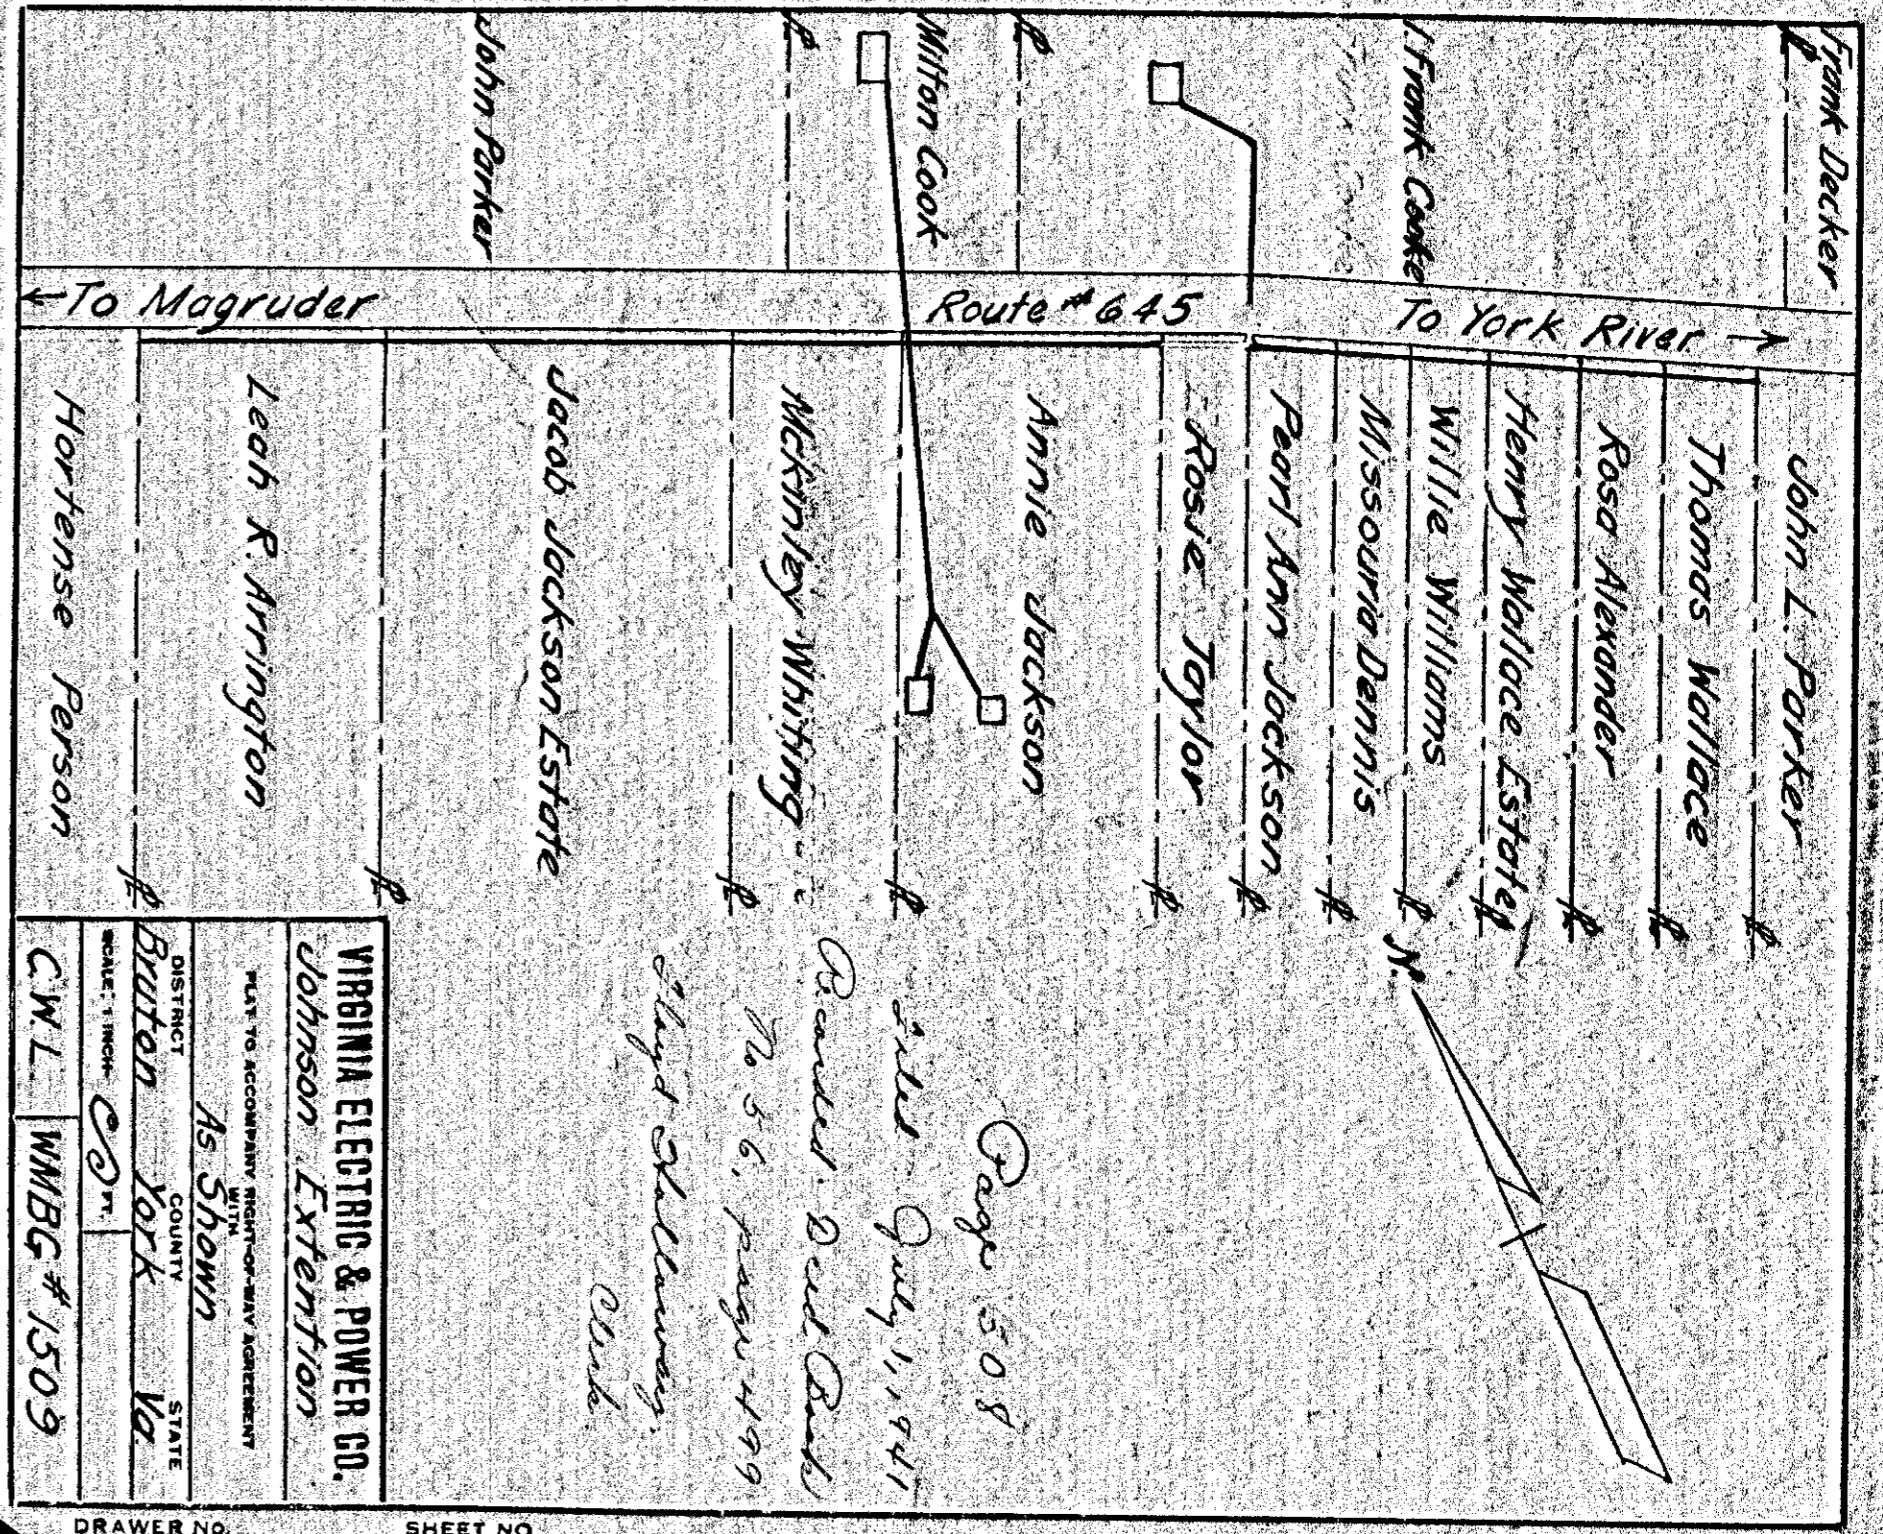 Frank Decker
J. Frank Cooke
Milton Cook
John Parker
← To Magruder
Route # 645
To York River →
Hortense Person
Leah R. Arrington
Jacob Jackson Estate
McKinley Whiting
Annie Jackson
Rosie Taylor
Pearl Ann Jackson
Missouria Dennis
Willie Williams
Henry Wallace Estate
Rosa Alexander
Thomas Wallace
John L. Parker
N.
Page 508
Filed July 1, 1941
Recorded Deed Book
No 56, page 499
Floyd Hollaway,
Clerk.
VIRGINIA ELECTRIC & POWER CO.
Johnson Extention
PLAT TO ACCOMPANY RIGHT-OF-WAY AGREEMENT
WITH
As Shown
DISTRICT COUNTY STATE
Bruton York Va.
SCALE: 1 INCH FT.
C.W.L. WMBG # 1509
DRAWER NO. SHEET NO.